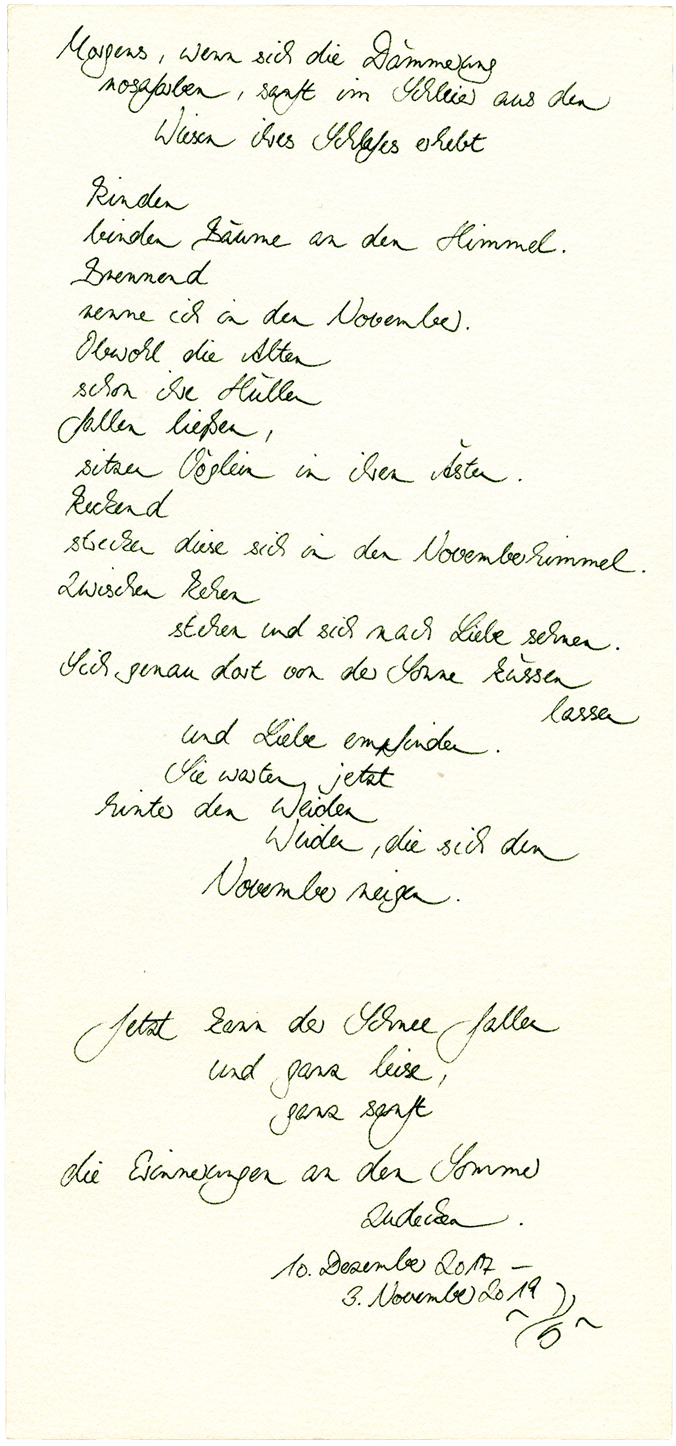 Morgens, wenn sich die Dämmerung
rosafarben, sanft im Schleier aus den
Wiesen ihres Schlafes erhebt
Rinden
binden Bäume an den Himmel.
Brennend
renne ich in den November.
Obwohl die Alten
schon ihre Hüllen
fallen ließen,
sitzen Vöglein in ihren Ästen.
Reckend
strecken diese sich in den Novemberhimmel.
Zwischen Rehen
stehen und sich nach Liebe sehnen.
Sich genau dort von der Sonne küssen
lassen
und Liebe empfinden.
Sie warten jetzt
hinter den Weiden
Weiden, die sich dem
November neigen.
Jetzt kann der Schnee fallen
und ganz leise,
ganz sanft
die Erinnerungen an den Sommer
zudecken.
10. Dezember 2017 –
3. November 2019